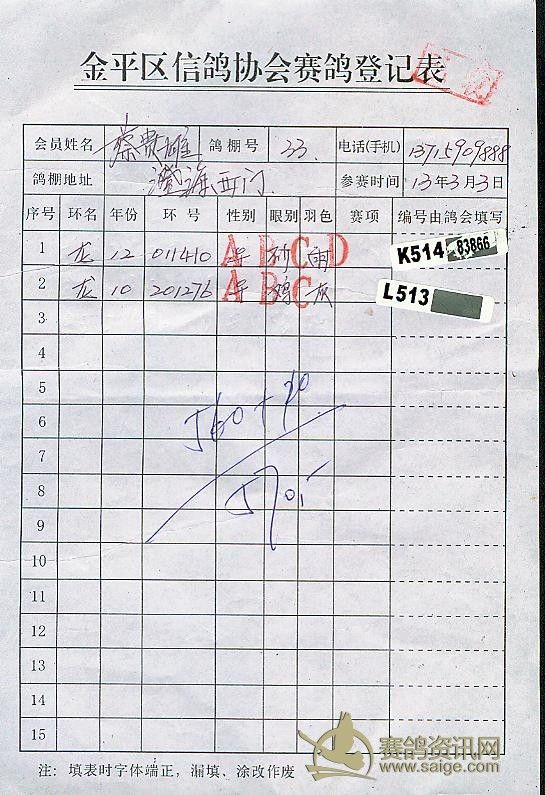 金平区信鸽协会赛鸽登记表
会员姓名 蔡贵雄 鸽棚号 33. 电话(手机) 13715909888
鸽棚地址 澄海西门. 参赛时间 13年3月3日
序号 环名 年份 环号 性别 眼别 羽色 赛项 编号由鸽会填写
1 龙 12 011410 A 砂 B 雨 C D K514 83866
2 龙 10 201276 A B C 灰 L513
3
4
5
6
7
8
9
10
11
12
13
14
15
注: 填表时字体端正，漏填、涂改作废
赛鸽资讯网
www.saige.com